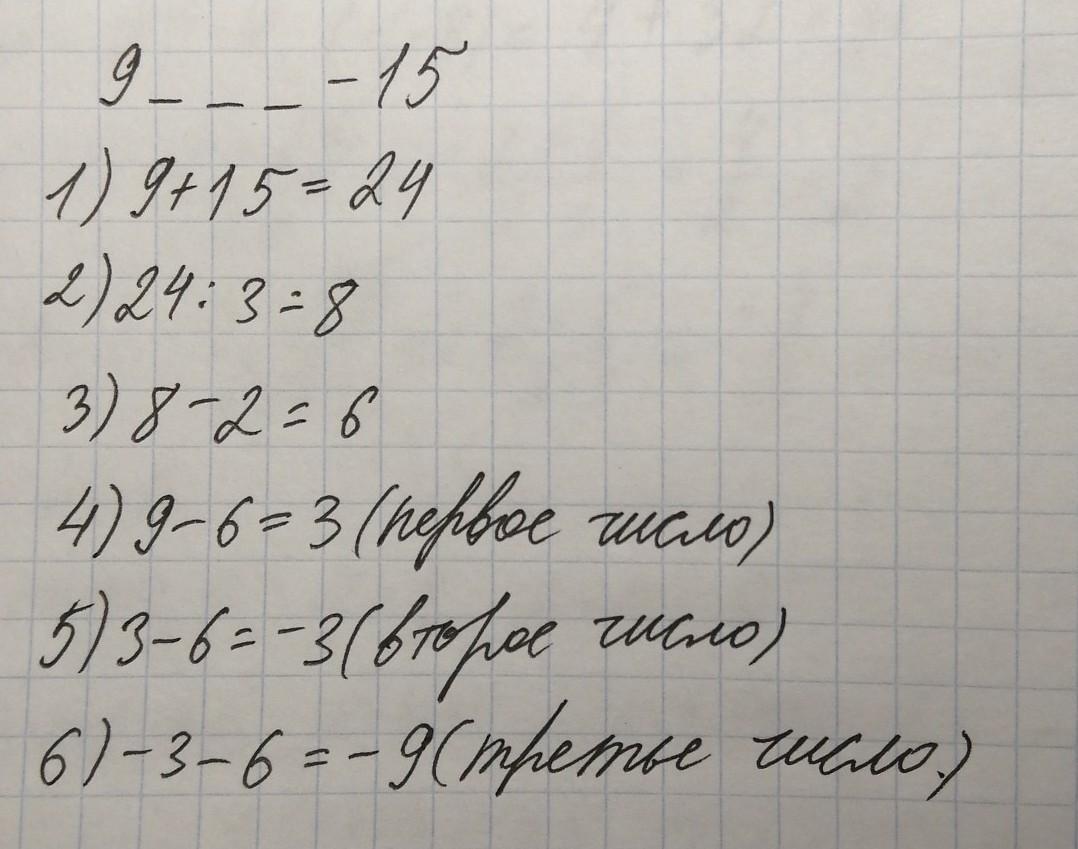 9 _ _ _ -15
1) 9+15=24
2) 24:3=8
3) 8-2=6
4) 9-6=3 (первое число)
5) 3-6=-3 (второе число)
6) -3-6=-9 (третье число.)